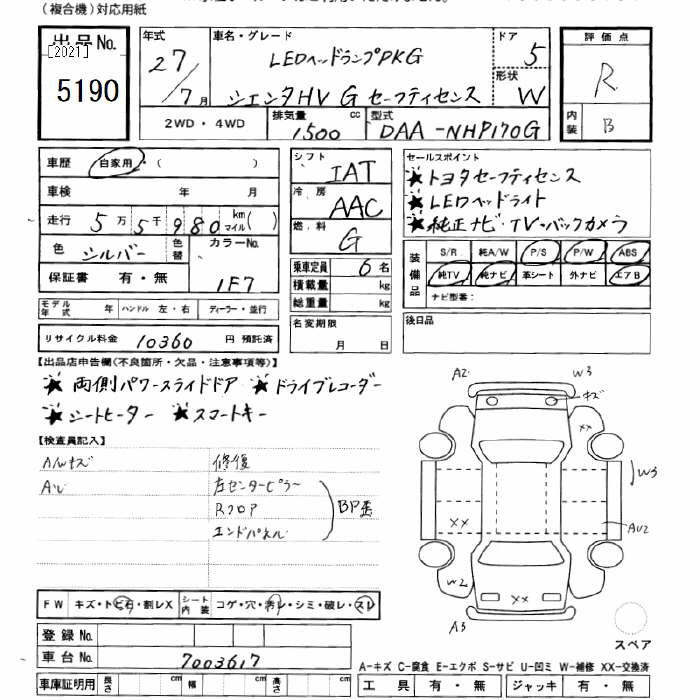 (複合機)対応用紙
出品No. [2021] 5190
年式 27/7月
車名・グレード LEDヘッドランプPKG
シエンタHV G セーフティセンス
ドア 5
形状 W
評価点 R
内装 B
2WD・4WD 排気量 1500 cc 型式 DAA-NHP170G
車歴 自家用・( )
車検 年 月
走行 5万5千980 km マイル( )
色 シルバー 色替 カラーNo. 1F7
保証書 有・無
モデル年式 年 ハンドル 左・右 ディーラー・並行
リサイクル料金 10360 円 預託済
シフト IAT
冷房 AAC
燃料 G
乗車定員 6名
積載量 kg
総重量 kg
名変期限 月 日
セールスポイント
★トヨタセーフティセンス
★LEDヘッドライト
★純正ナビ・TV・バックカメラ
装備品 S/R 純A/W P/S P/W ABS
純TV 純ナビ 革シート 外ナビ エアB
ナビ型番:
後日品
【出品店申告欄(不良箇所・欠品・注意事項等)】
★両側パワースライドドア ★ドライブレコーダー
★シートヒーター ★スマートキー
【検査員記入】
修復
左センターピラー
Rフロア
エンドパネル
BP歪
A2 W3
キズ
XX
W3
XX AU2
W2
XX
A3
スペア
FW キズ・トビ石・割レX シート内装 コゲ・穴・汚レ・シミ・破レ・スレ
登録No.
車台No. 7003617
車庫証明用 長さ cm 幅 cm 高さ cm
A-キズ C-腐食 E-エクボ S-サビ U-凹ミ W-補修 XX-交換済
工具 有・無 ジャッキ 有・無